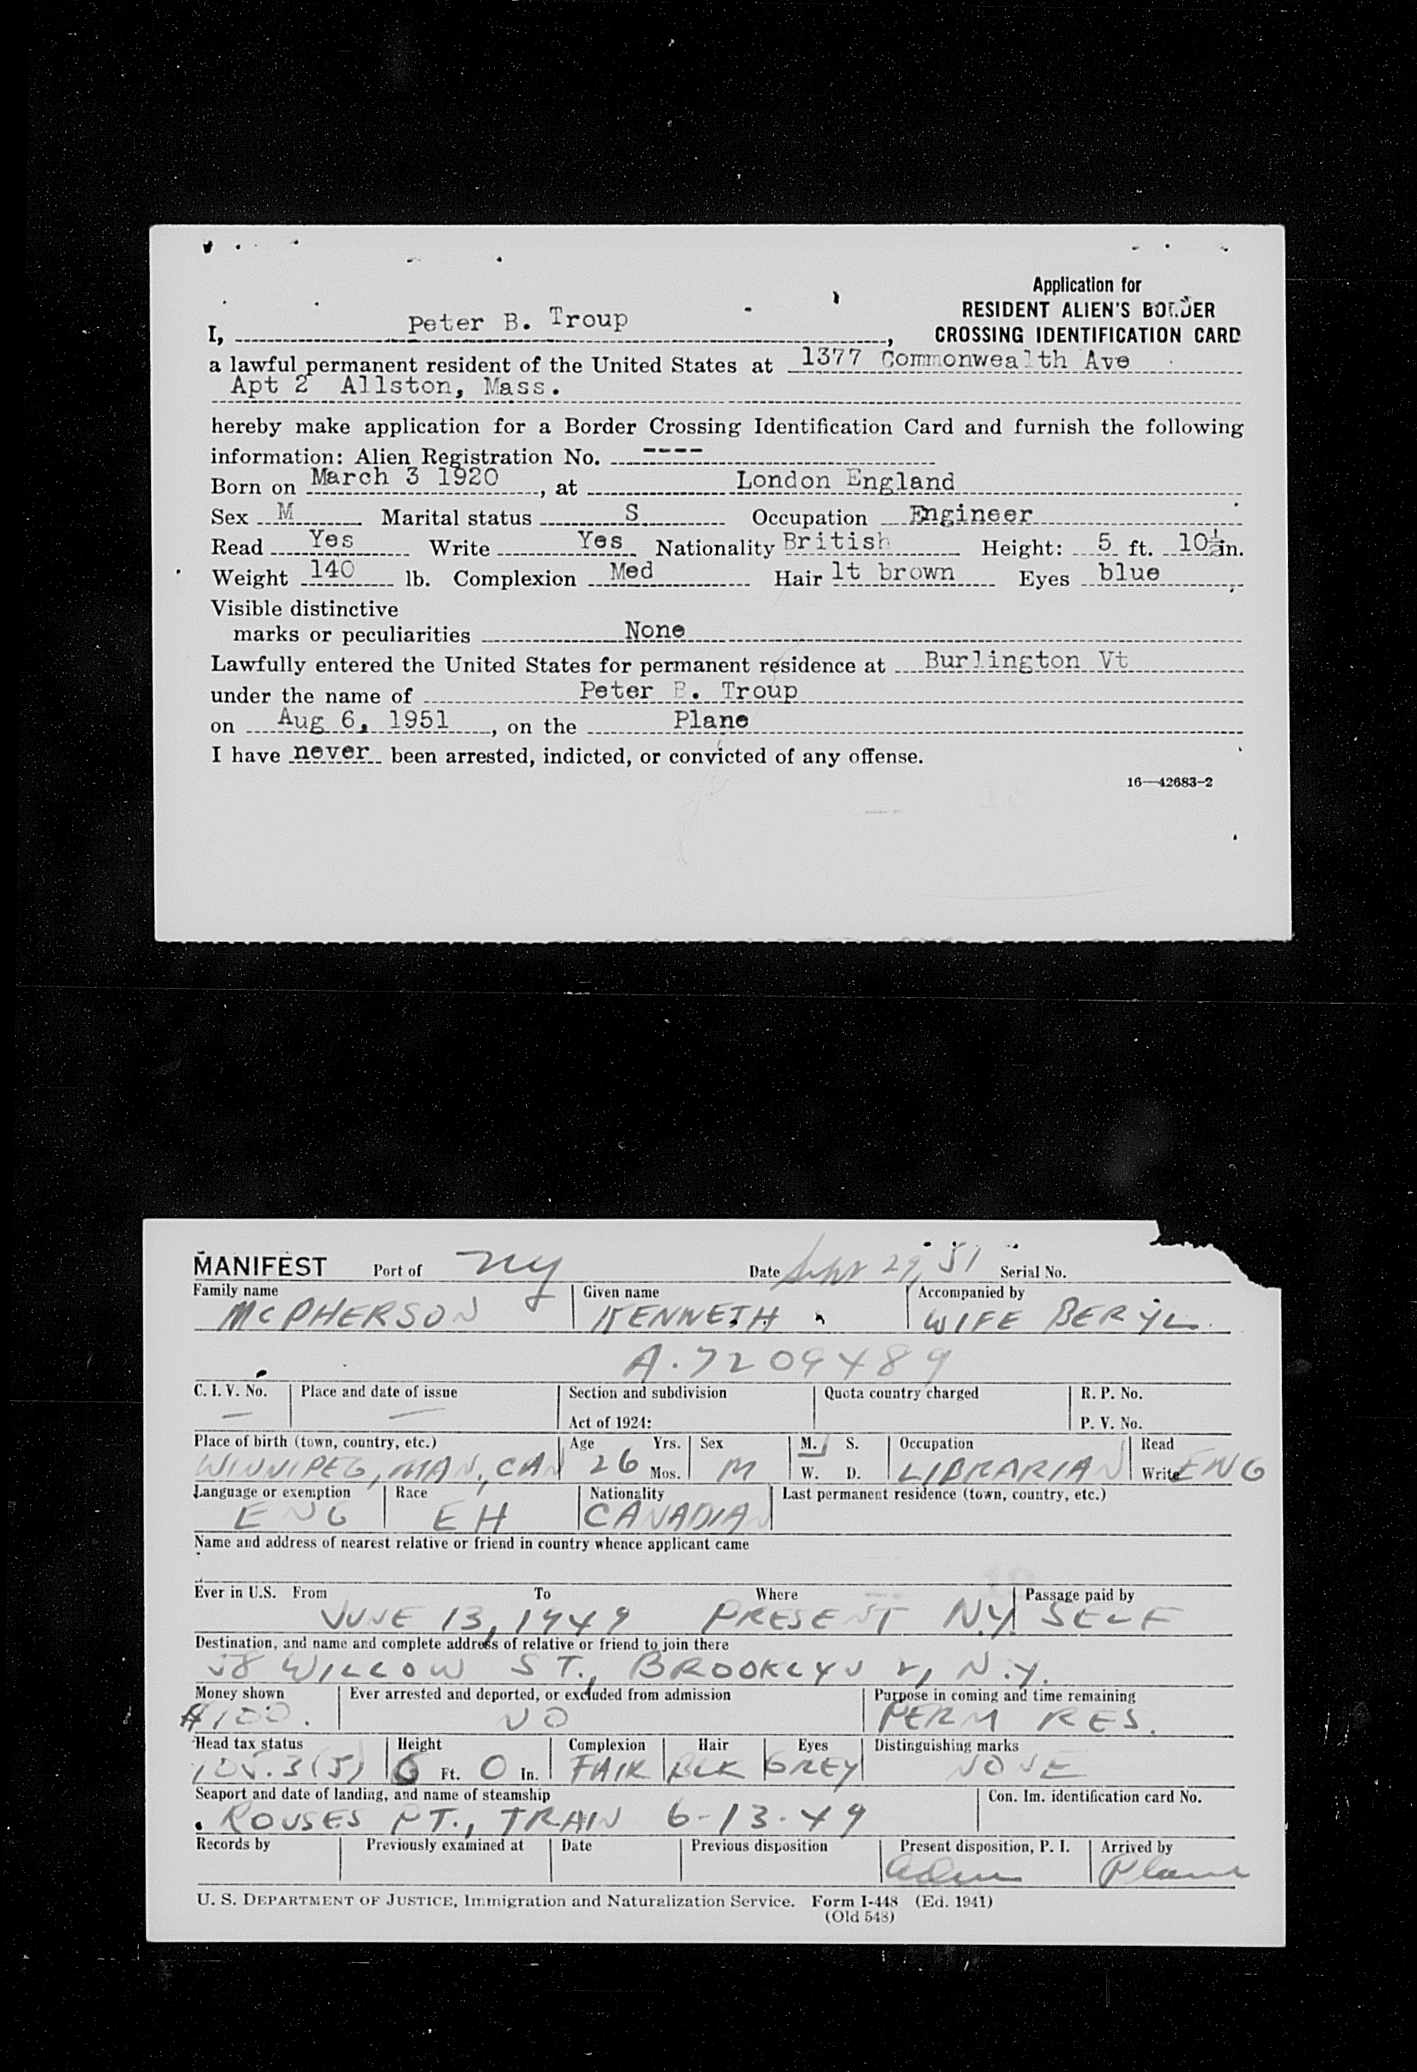 Application for
RESIDENT ALIEN'S BORDER
I, Peter B. Troup, CROSSING IDENTIFICATION CARD
a lawful permanent resident of the United States at 1377 Commonwealth Ave
Apt 2 Allston, Mass.
hereby make application for a Border Crossing Identification Card and furnish the following
information: Alien Registration No. ----
Born on March 3 1920, at London England
Sex M Marital status S Occupation Engineer
Read Yes Write Yes Nationality British Height: 5 ft. 10½ in.
Weight 140 lb. Complexion Med Hair lt brown Eyes blue
Visible distinctive
marks or peculiarities None
Lawfully entered the United States for permanent residence at Burlington Vt
under the name of Peter B. Troup
on Aug 6, 1951, on the Plane
I have never been arrested, indicted, or convicted of any offense.
16—42683-2
MANIFEST Port of NY Date Sept 29, 51 Serial No.
Family name Given name Accompanied by
McPHERSON KENNETH WIFE BERYL
A.7209489
C. I. V. No. Place and date of issue Section and subdivision Quota country charged R. P. No.
— — Act of 1924: P. V. No.
Place of birth (town, country, etc.) Age Yrs. Sex M. S. Occupation Read
WINNIPEG, MAN, CAN 26 Mos. M W. D. LIBRARIAN Write ENG
Language or exemption Race Nationality Last permanent residence (town, country, etc.)
ENG EH CANADIAN
Name and address of nearest relative or friend in country whence applicant came
Ever in U.S. From To Where Passage paid by
JUNE 13, 1949 PRESENT N.Y. SELF
Destination, and name and complete address of relative or friend to join there
58 WILLOW ST., BROOKLYN 2, N.Y.
Money shown Ever arrested and deported, or excluded from admission Purpose in coming and time remaining
$100. NO PERM RES.
Head tax status Height Complexion Hair Eyes Distinguishing marks
6 Ft. 0 In. FAIR BLK GREY NONE
Seaport and date of landing, and name of steamship Con. Im. identification card No.
ROUSES PT., TRAIN 6-13-49
Records by Previously examined at Date Previous disposition Present disposition, P. I. Arrived by
Adm Plane
U. S. DEPARTMENT OF JUSTICE, Immigration and Naturalization Service. Form I-448 (Ed. 1941)
(Old 548)